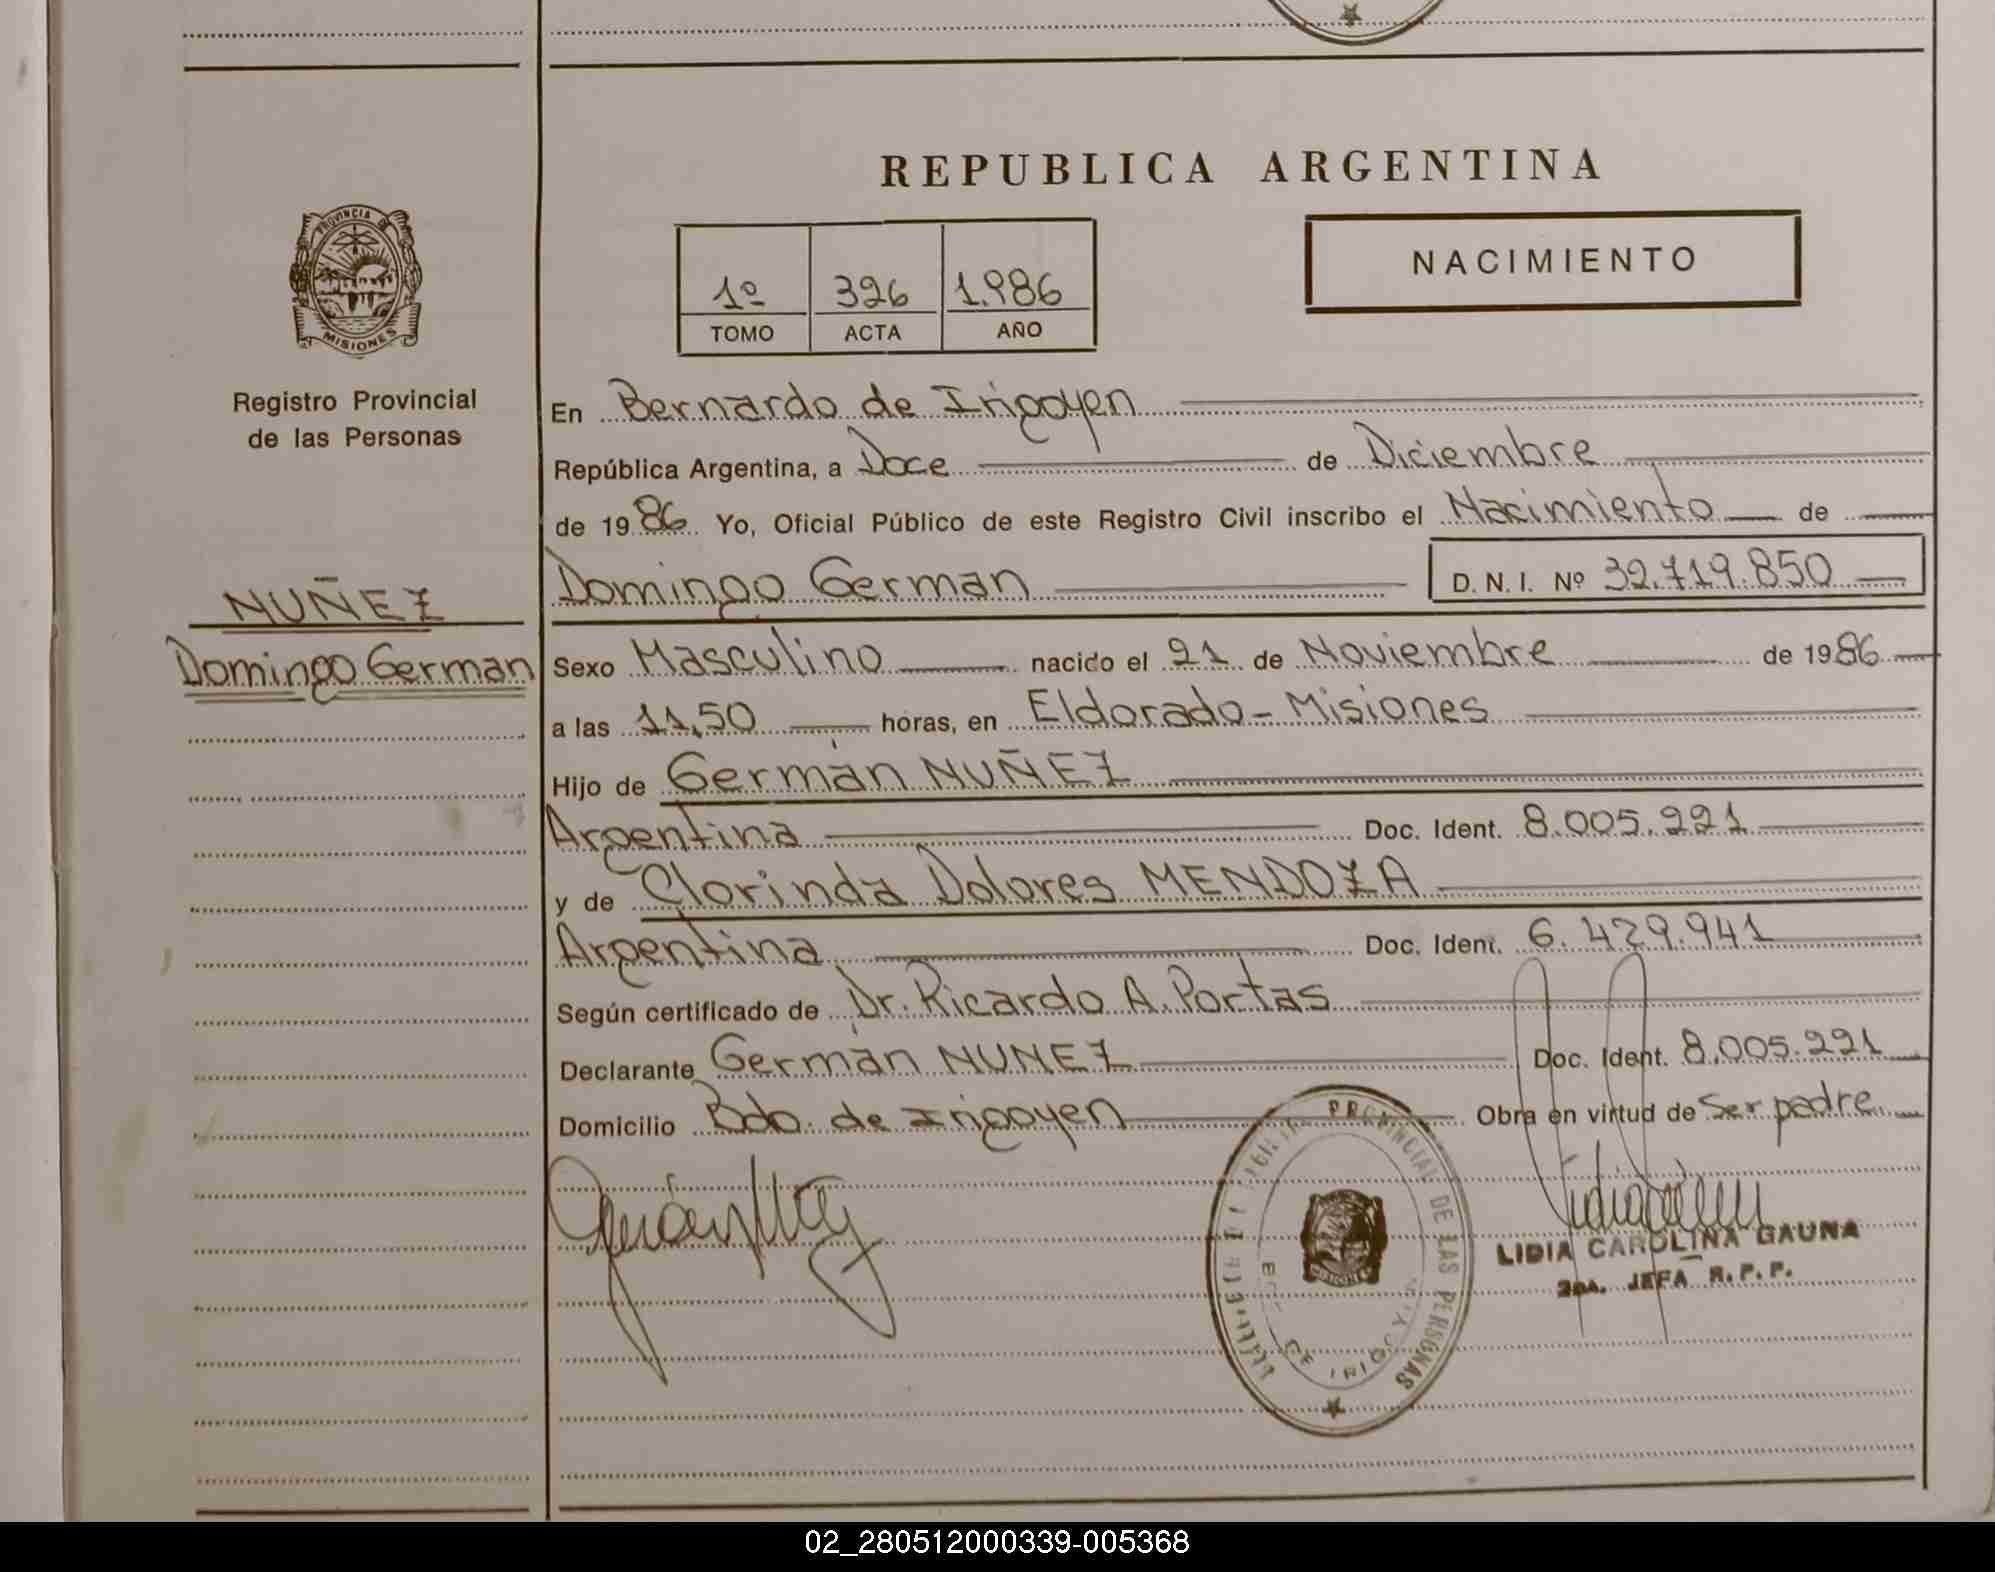 REPUBLICA ARGENTINA
PROVINCIA DE
MISIONES
Registro Provincial
de las Personas
1º 326 1.986
TOMO ACTA AÑO
NACIMIENTO
En Bernardo de Irigoyen
República Argentina, a Doce de Diciembre
de 1986 Yo, Oficial Público de este Registro Civil inscribo el Nacimiento de
Domingo German D. N. I. Nº 32.719.850
NUÑEZ
Domingo German
Sexo Masculino nacido el 21 de Noviembre de 1986
a las 11,50 horas, en Eldorado - Misiones
Hijo de Germán NUÑEZ
Argentina Doc. Ident. 8.005.221
y de Clorinda Dolores MENDOZA
Argentina Doc. Ident. 6.429.941
Según certificado de Dr. Ricardo A. Portas
Declarante German NUNEZ Doc. Ident. 8.005.221
Domicilio Bdo. de Irigoyen Obra en virtud de Ser padre
PROVINCIAL DE LAS PERSONAS
DE IRIGOYEN
LIDIA CAROLINA GAUNA
2da. JEFA R. P. P.
02_280512000339-005368